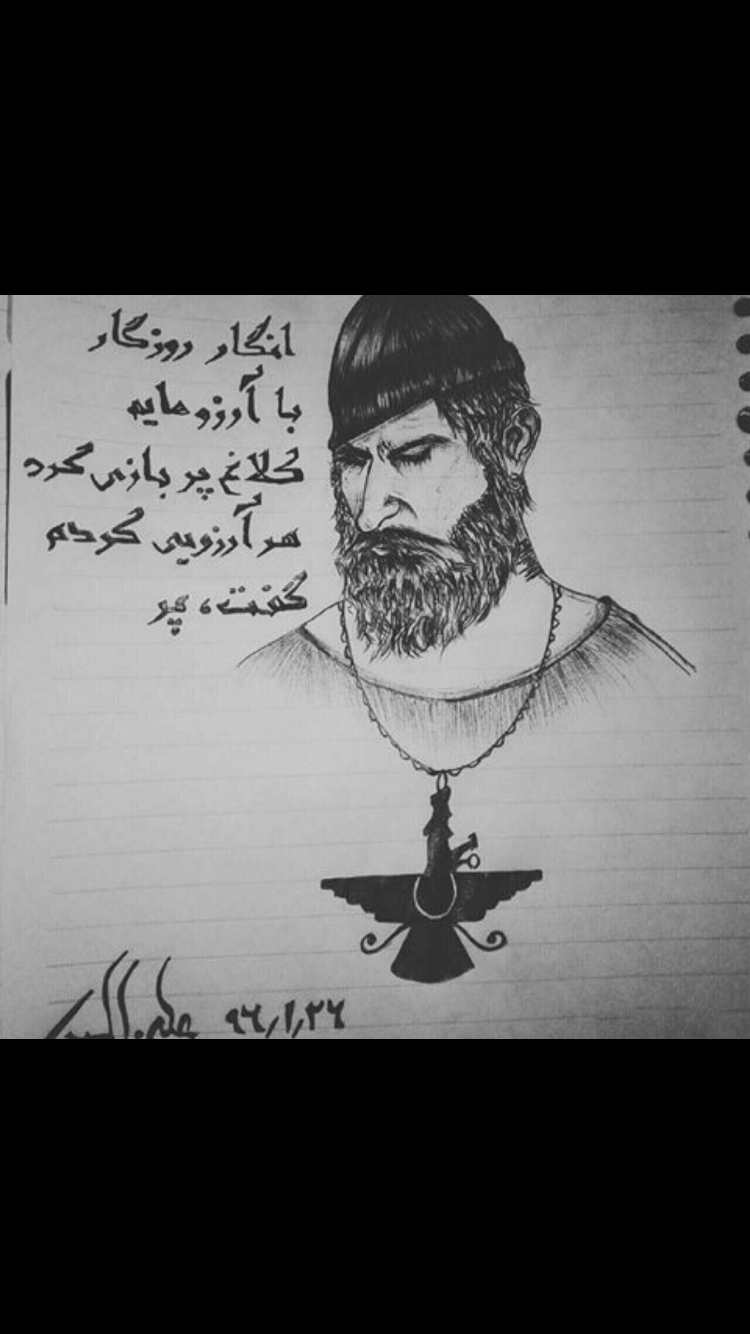 انگار روزگار
با آرزوهایم
کلاغ پر بازی کرد
هر آرزویی کردم
گفت، پر
۹۶/۱/۲۶